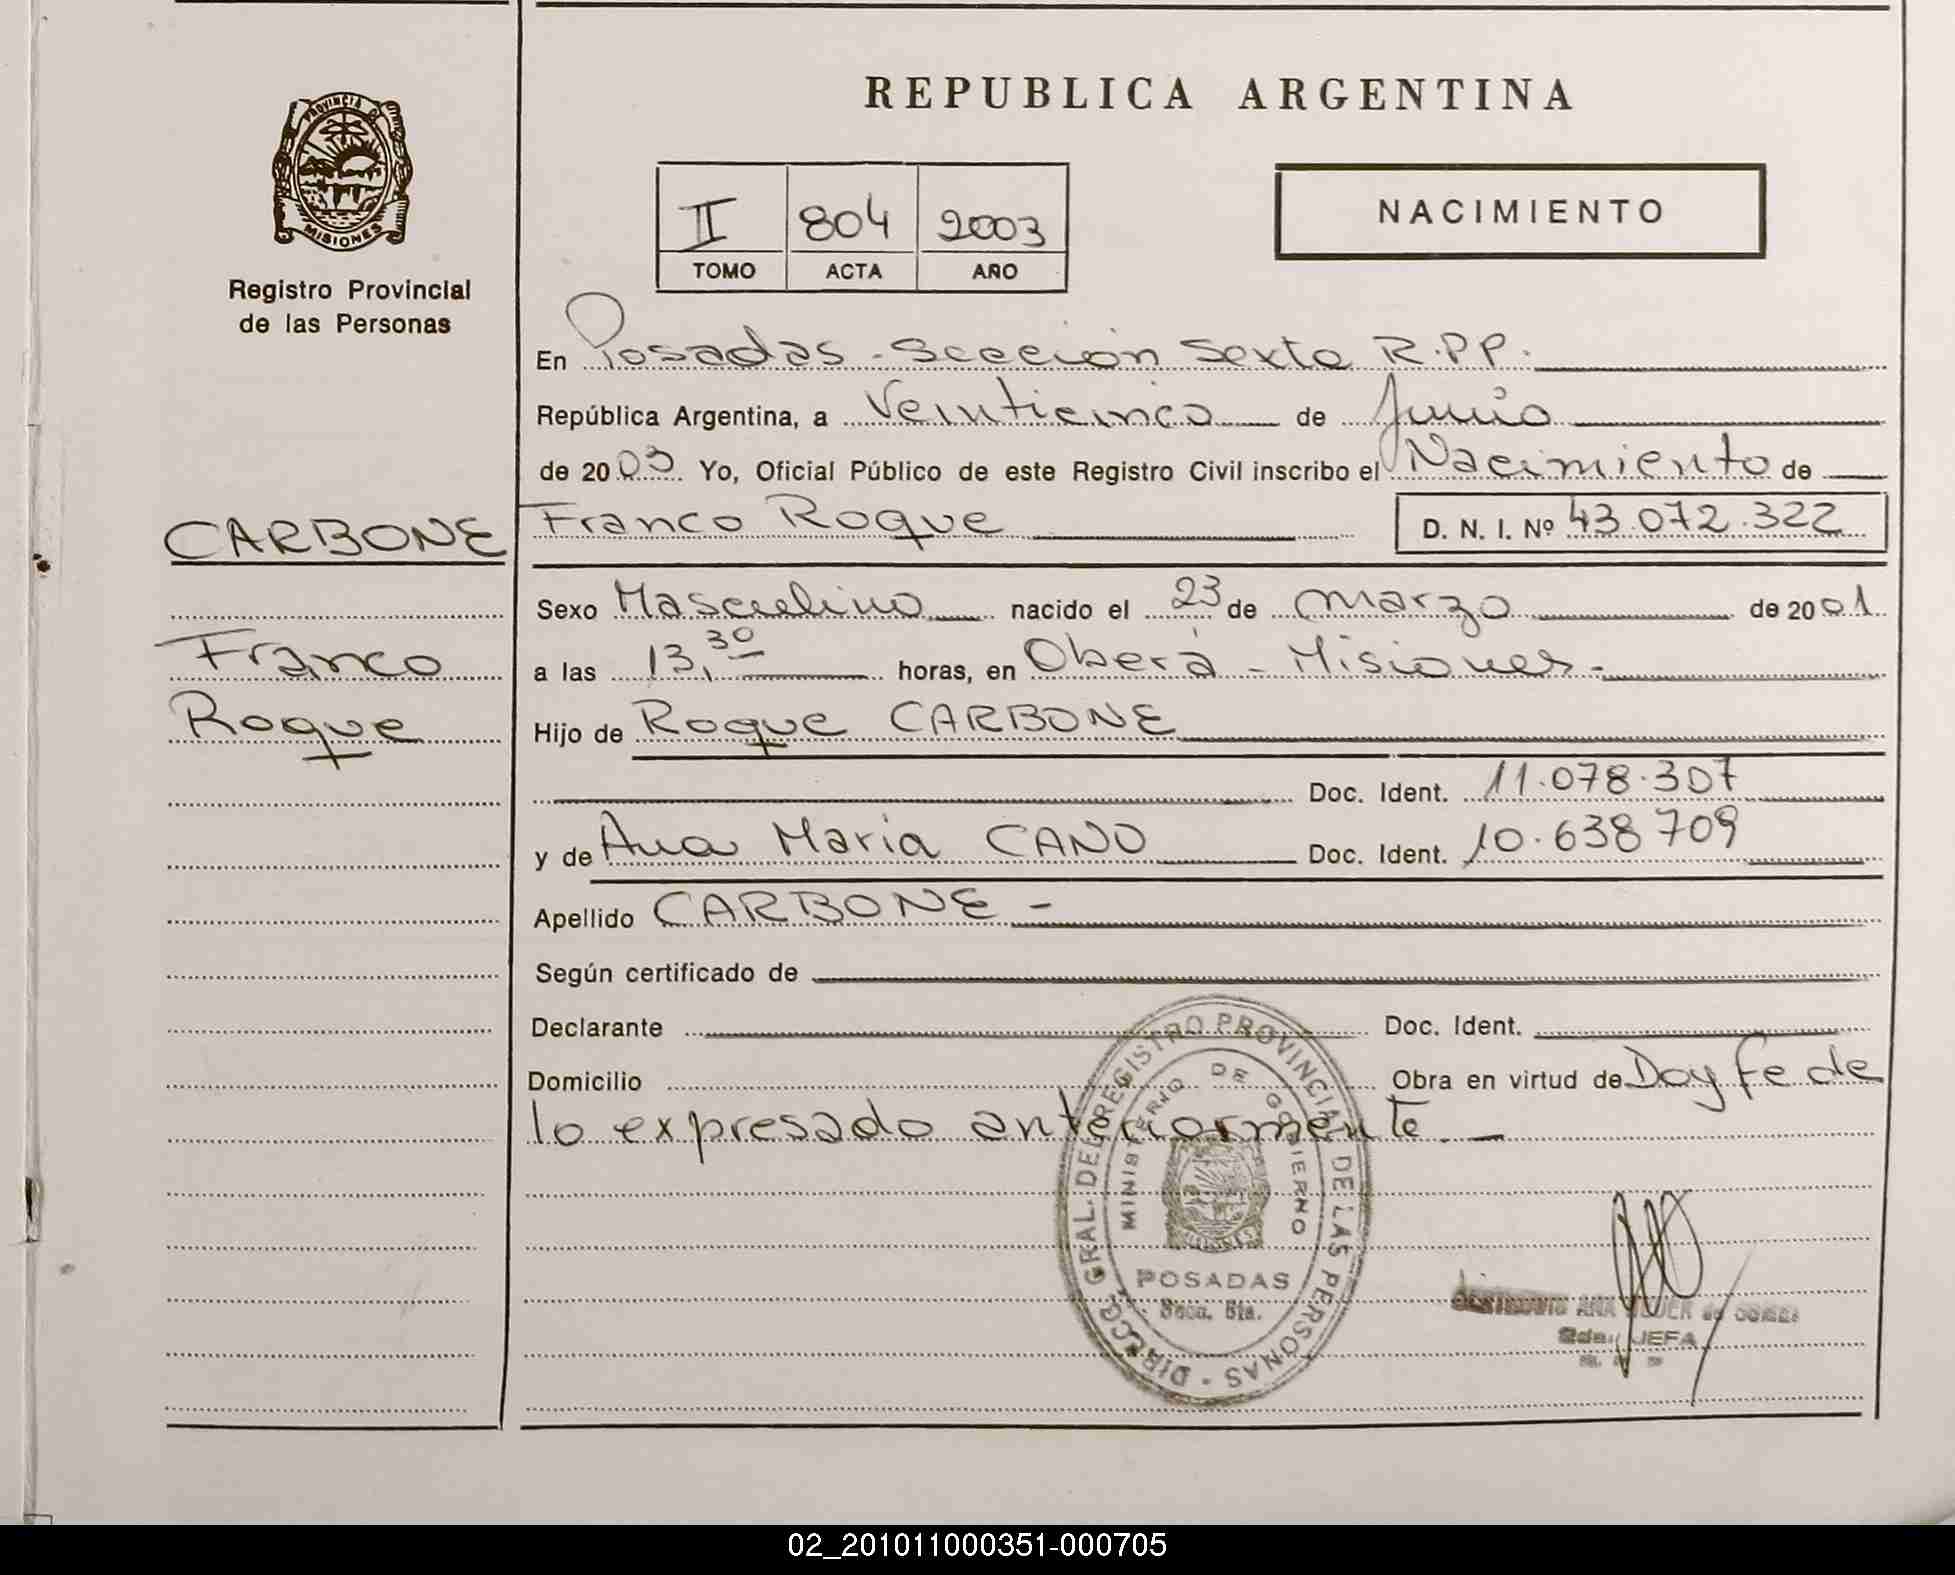 REPUBLICA ARGENTINA
PROVINCIA DE
MISIONES
Registro Provincial
de las Personas
II 804 2003
TOMO ACTA AÑO
NACIMIENTO
En Posadas - Sección Sexta R.P.P.
República Argentina, a Veinticinco de Junio
de 2003 Yo, Oficial Público de este Registro Civil inscribo el Nacimiento de
CARBONE
Franco Roque D. N. I. Nº 43.072.322
Sexo Masculino nacido el 23 de marzo de 2001
Franco
Roque
a las 13,30 horas, en Oberá - Misiones-
Hijo de Roque CARBONE
Doc. Ident. 11.078.307
y de Ana Maria CANO Doc. Ident. 10.638709
Apellido CARBONE -
Según certificado de
Declarante Doc. Ident.
Domicilio Obra en virtud de Doy fe de
lo expresado anteriormente. -
DIRECC. GRAL. DEL REGISTRO PROVINCIAL DE LAS PERSONAS
MINISTERIO DE GOBIERNO
MISIONES
POSADAS
Secc. 6ta.
ANA
2da. JEFA
02_201011000351-000705